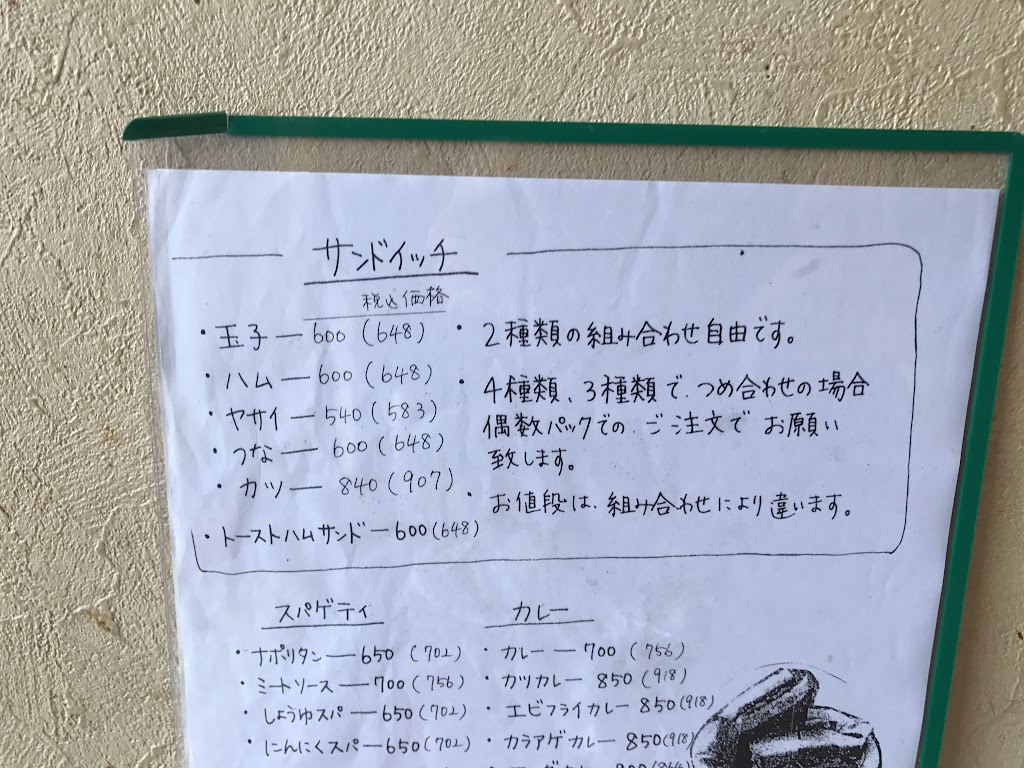 サンドイッチ
税込価格
・玉子ー600(648)
・ハムー600(648)
・ヤサイー540(583)
・つなー600(648)
・カツー840(907)
・トーストハムサンドー600(648)
・2種類の組み合わせ自由です。
・4種類、3種類で、つめ合わせの場合
偶数パックでの、ご注文でお願い
致します。
・お値段は、組み合わせにより違います。
スパゲティ
・ナポリタンー650(702)
・ミートソースー700(756)
・しょうゆスパー650(702)
・にんにくスパー650(702)
カレー
・カレーー700(756)
・カツカレー850(918)
・エビフライカレー850(918)
・カラアゲカレー850(918)